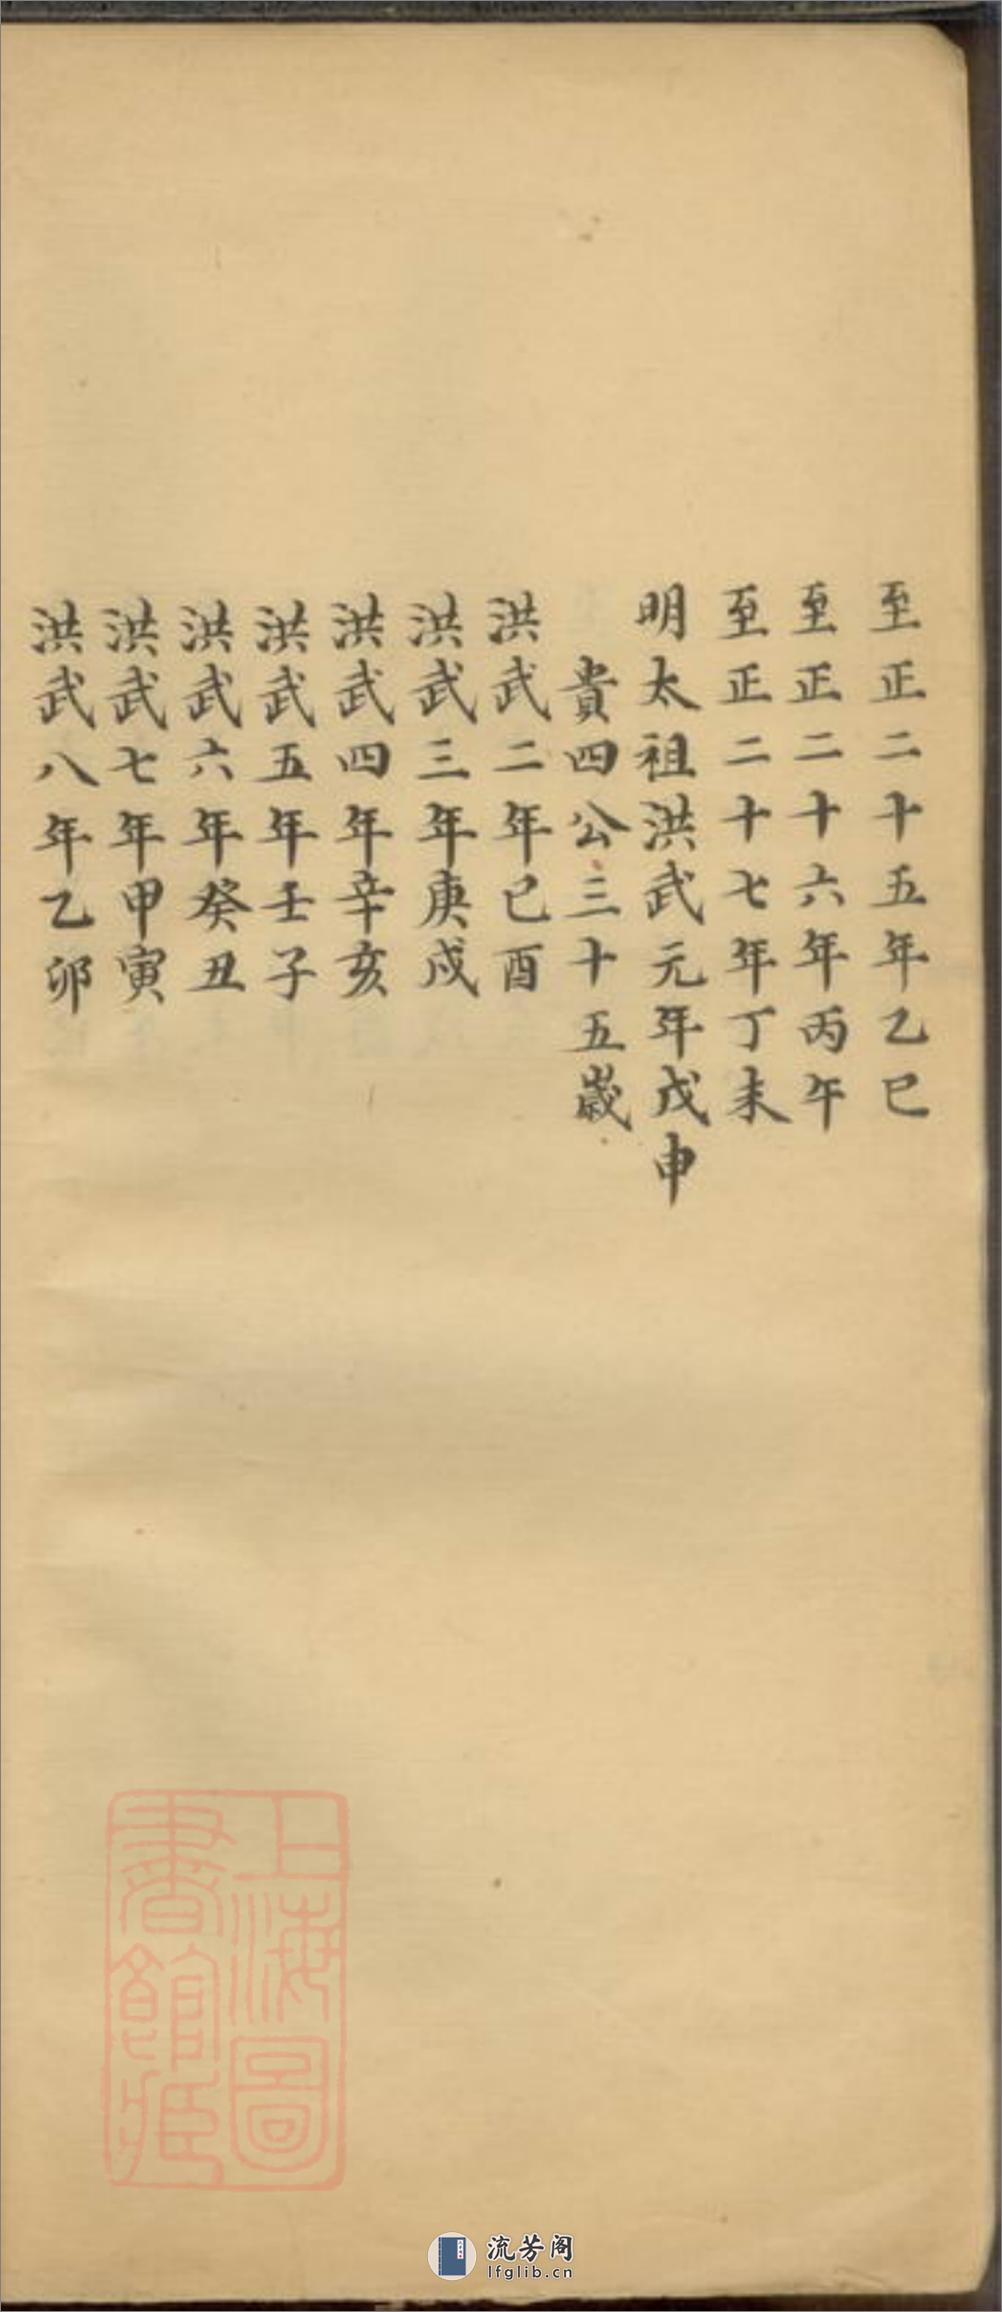 至正二十五年乙巳
至正二十六年丙午
至正二十七年丁未
明太祖洪武元年戊申
貴四公三十五歲
洪武二年己酉
洪武三年庚戌
洪武四年辛亥
洪武五年壬子
洪武六年癸丑
洪武七年甲寅
洪武八年乙卯
上海圖
書館藏
流芳阁
lfglib.cn